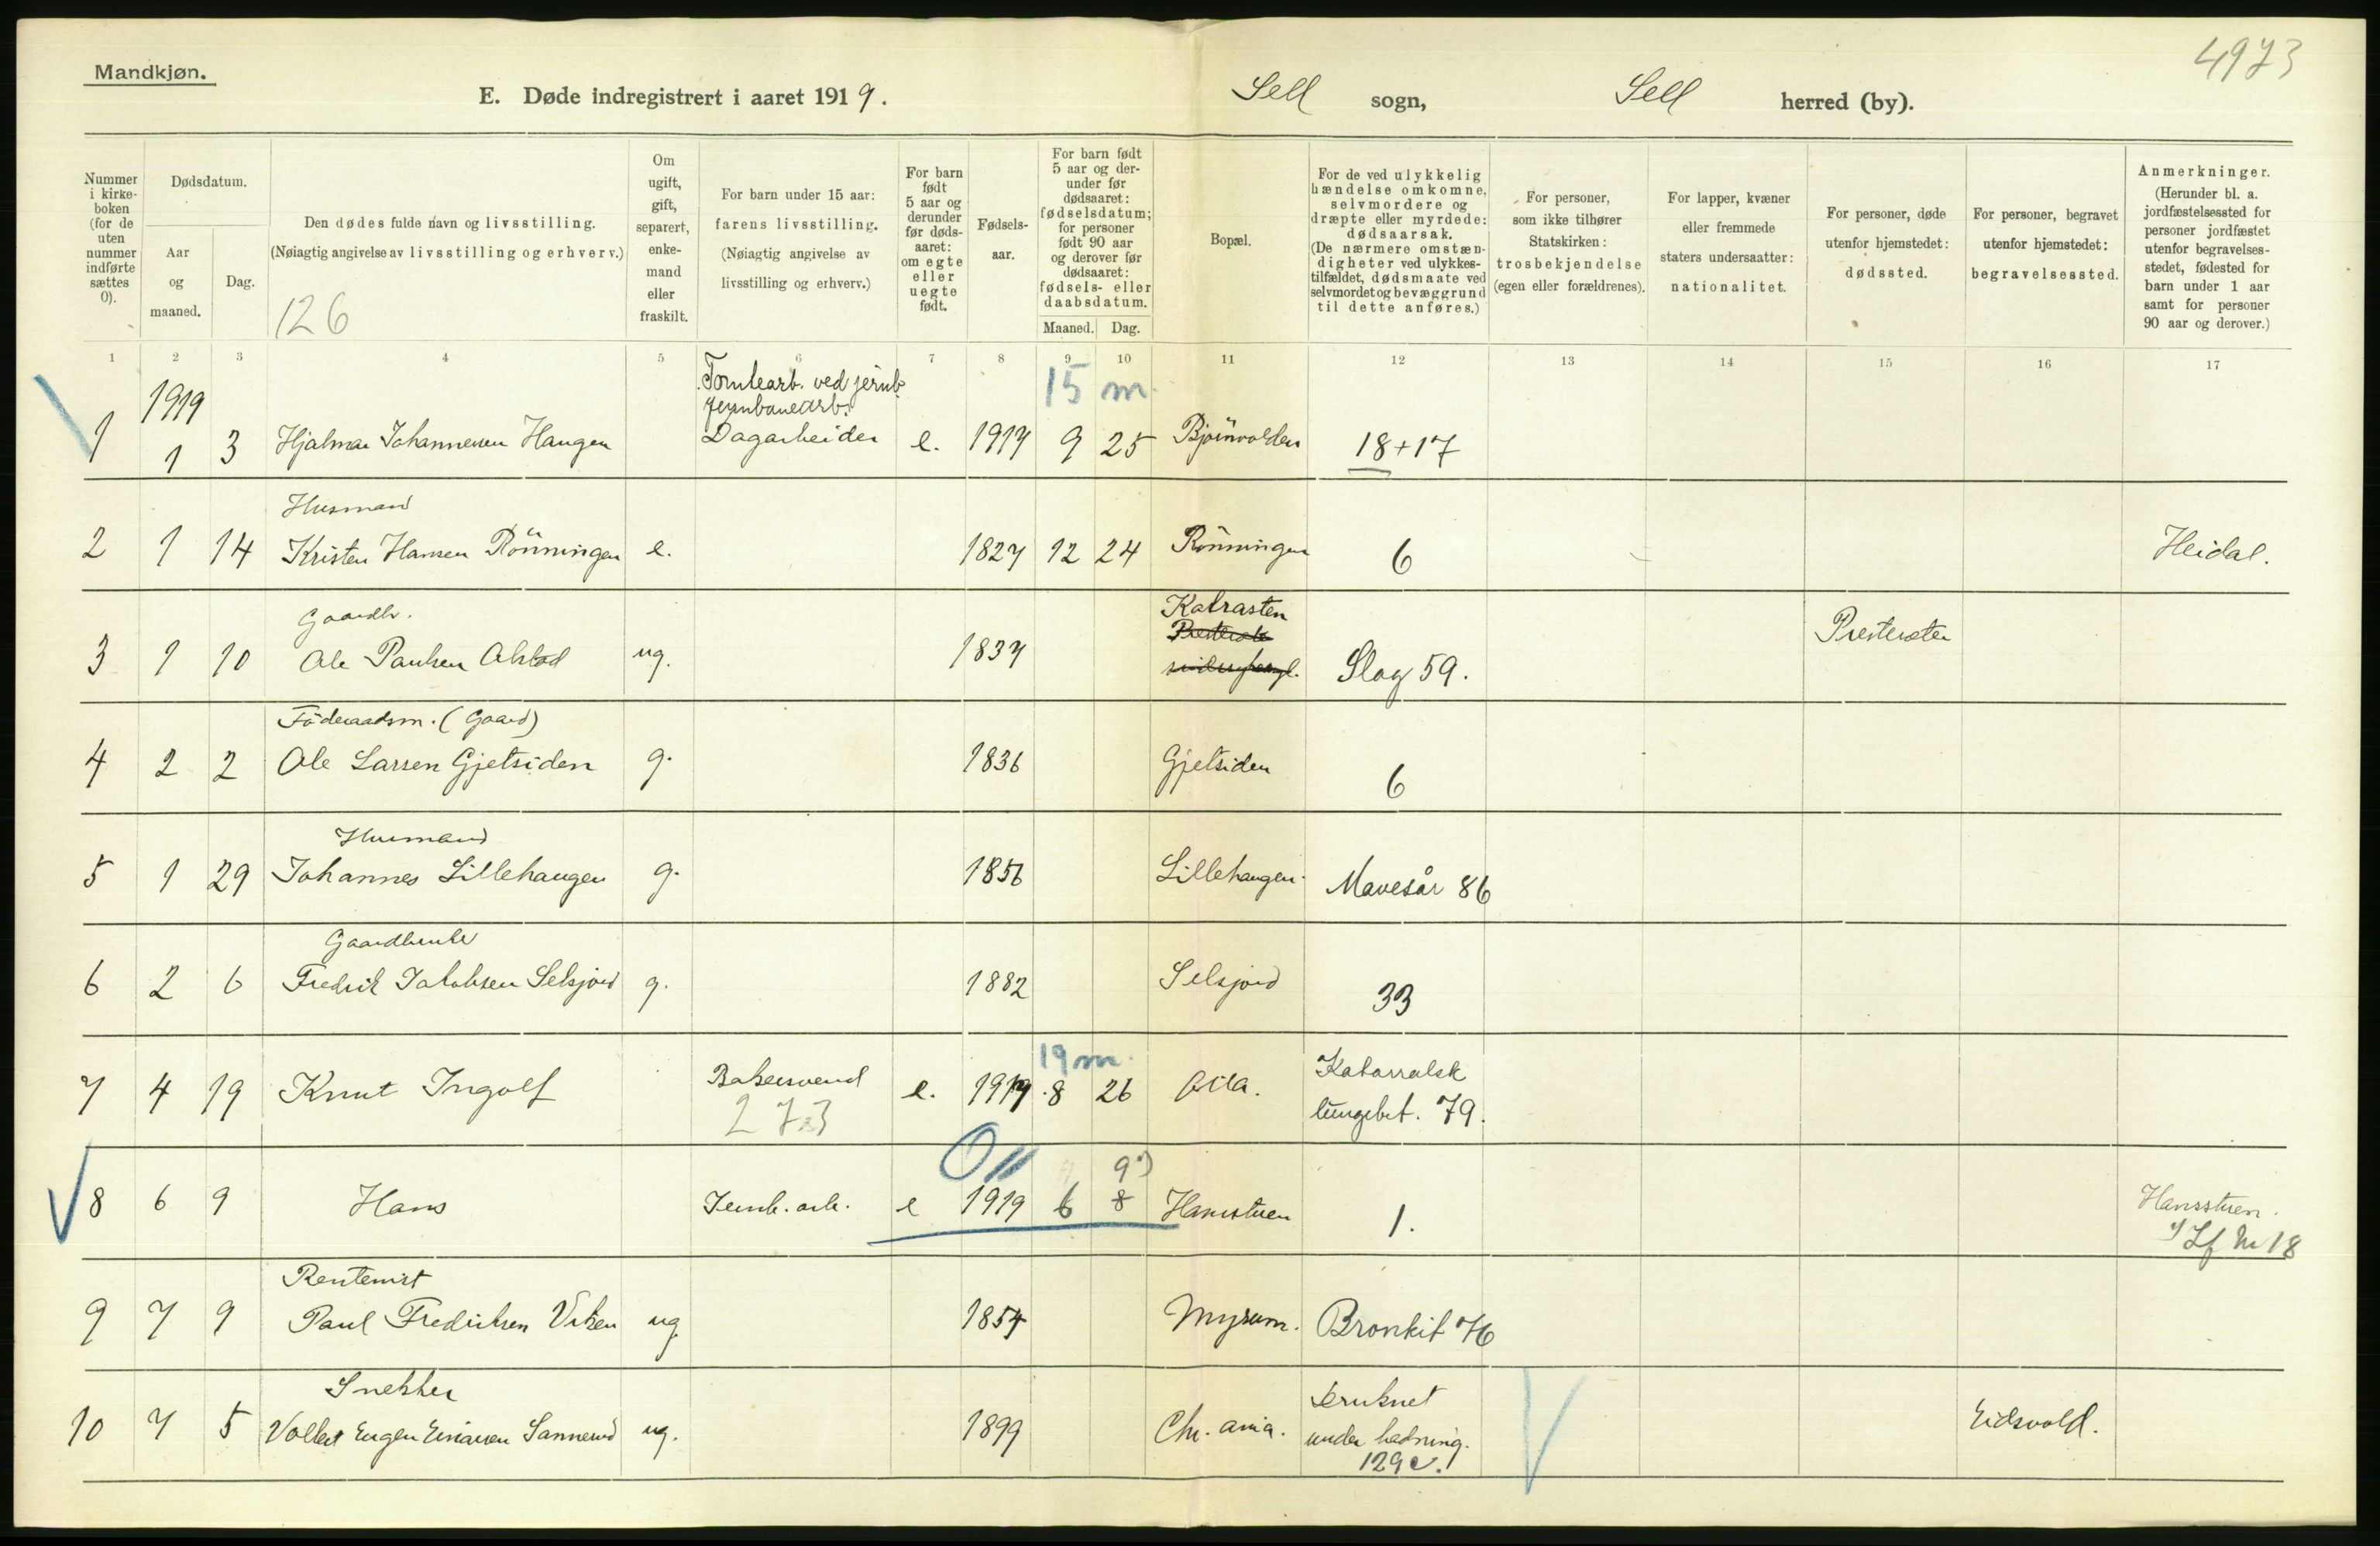 Mandkjøn.
4973
E. Døde indregistrert i aaret 1919.
Sell sogn, Sell herred (by).
Nummer i kirke-boken (for de uten nummer indførte sættes 0).
Dødsdatum.
Aar og maaned.
Dag.
Den dødes fulde navn og livsstilling.
(Nøiagtig angivelse av livsstilling og erhverv.)
126
Om ugift, gift, separert, enke-mand eller fraskilt.
For barn under 15 aar:
farens livsstilling.
(Nøiagtig angivelse av livsstilling og erhverv.)
For barn født 5 aar og derunder før døds-aaret: om egte eller uegte født.
Fødsels-aar.
For barn født 5 aar og der-under før dødsaaret: fødselsdatum; for personer født 90 aar og derover før dødsaaret: fødsels- eller daabsdatum.
Maaned. Dag.
Bopæl.
For de ved ulykkelig hændelse omkomne, selvmordere og dræpte eller myrdede: dødsaarsak.
(De nærmere omstæn-digheter ved ulykkes-tilfældet, dødsmaate ved selvmordet og bevæggrund til dette anføres.)
For personer, som ikke tilhører Statskirken: trosbekjendelse (egen eller forældrenes).
For lapper, kvæner eller fremmede staters undersaatter: nationalitet.
For personer, døde utenfor hjemstedet: dødssted.
For personer, begravet utenfor hjemstedet: begravelsessted.
Anmerkninger.
(Herunder bl. a. jordfæstelsessted for personer jordfæstet utenfor begravelses-stedet, fødested for barn under 1 aar samt for personer 90 aar og derover.)
1 2 3 4 5 6 7 8 9 10 11 12 13 14 15 16 17
1919 Tomtearb. ved jernb. 15 m.
Jernbanearb.
1 1 3 Hjalmar Johannesen Haugen Dagarbeider e. 1917 9 25 Bjørnvolden 18+17
Husmand
2 1 14 Kristen Hansen Rönningen e. 1827 12 24 Rönningen 6 Heidal.
Gaardb. Kabrasten
3 1 10 Ole Paulsen Olstad ug. 1837 Slag 59. Presteseter
Föderaadsm. (Gaard)
4 2 2 Ole Larsen Gjetsiden g. 1836 Gjetsiden 6
Husmand
5 1 29 Johannes Lillehaugen g. 1856 Lillehaugen. Mavesår 86
Gaardbruker
6 2 6 Fredrik Jakobsen Selsjord g. 1882 Selsjord 33
19 m. Katarralsk
7 4 19 Knut Ingolf Bakersvend e. 1917 8 26 Otta. lungebet. 79.
273
0 9)
8 6 9 Hans Jernb. arb. e 1919 6 8 Hansstuen 1. Hansstuen.
Lf nr 18
Rentenist
9 7 9 Paul Fredriksen Viken ug 1854 Myrum. Bronkit 76
Snekker Druknet
10 7 5 Volbert Eugen Einarsen Sannerud ug. 1899 Chr. ania. under badning. Eidsvold.
129 c.